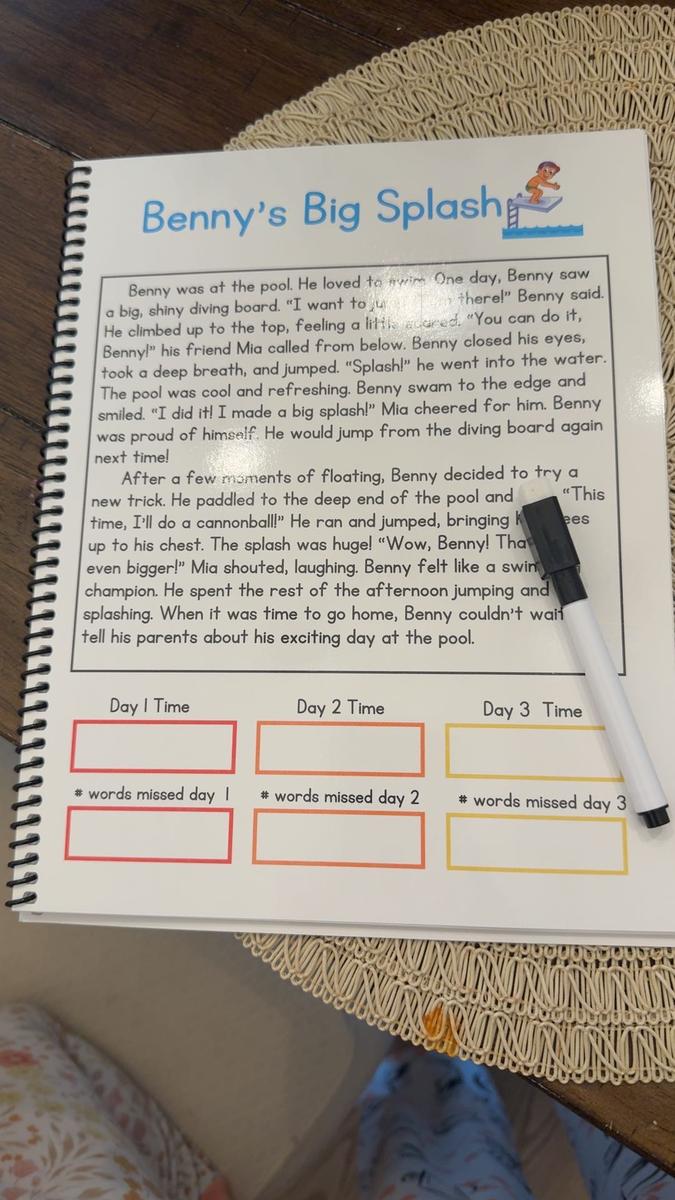 Benny's Big Splash
Benny was at the pool. He loved to swim. One day, Benny saw
a big, shiny diving board. "I want to there!" Benny said.
He climbed up to the top, feeling a little scared. "You can do it,
Benny!" his friend Mia called from below. Benny closed his eyes,
took a deep breath, and jumped. "Splash!" he went into the water.
The pool was cool and refreshing. Benny swam to the edge and
smiled. "I did it! I made a big splash!" Mia cheered for him. Benny
was proud of himself. He would jump from the diving board again
next time!
After a few moments of floating, Benny decided to try a
new trick. He paddled to the deep end of the pool and "This
time, I'll do a cannonball!" He ran and jumped, bringing
up to his chest. The splash was huge! "Wow, Benny!
even bigger!" Mia shouted, laughing. Benny felt like a
champion. He spent the rest of the afternoon jumping and
splashing. When it was time to go home, Benny couldn't wait
tell his parents about his exciting day at the pool.
Day 1 Time Day 2 Time Day 3 Time
# words missed day 1 # words missed day 2 # words missed day 3